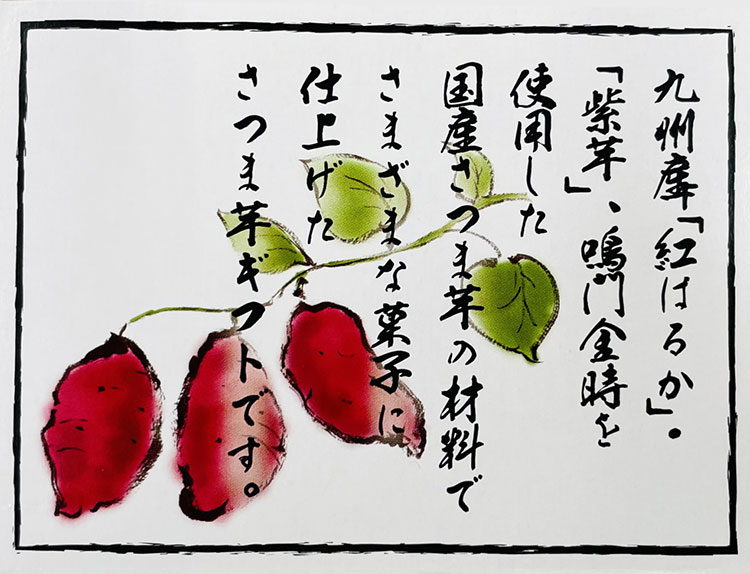 九州産「紅はるか」・
「紫芋」、鳴門金時を
使用した
国産さつま芋の材料で
さまざまな菓子に
仕上げた
さつま芋ギフトです。